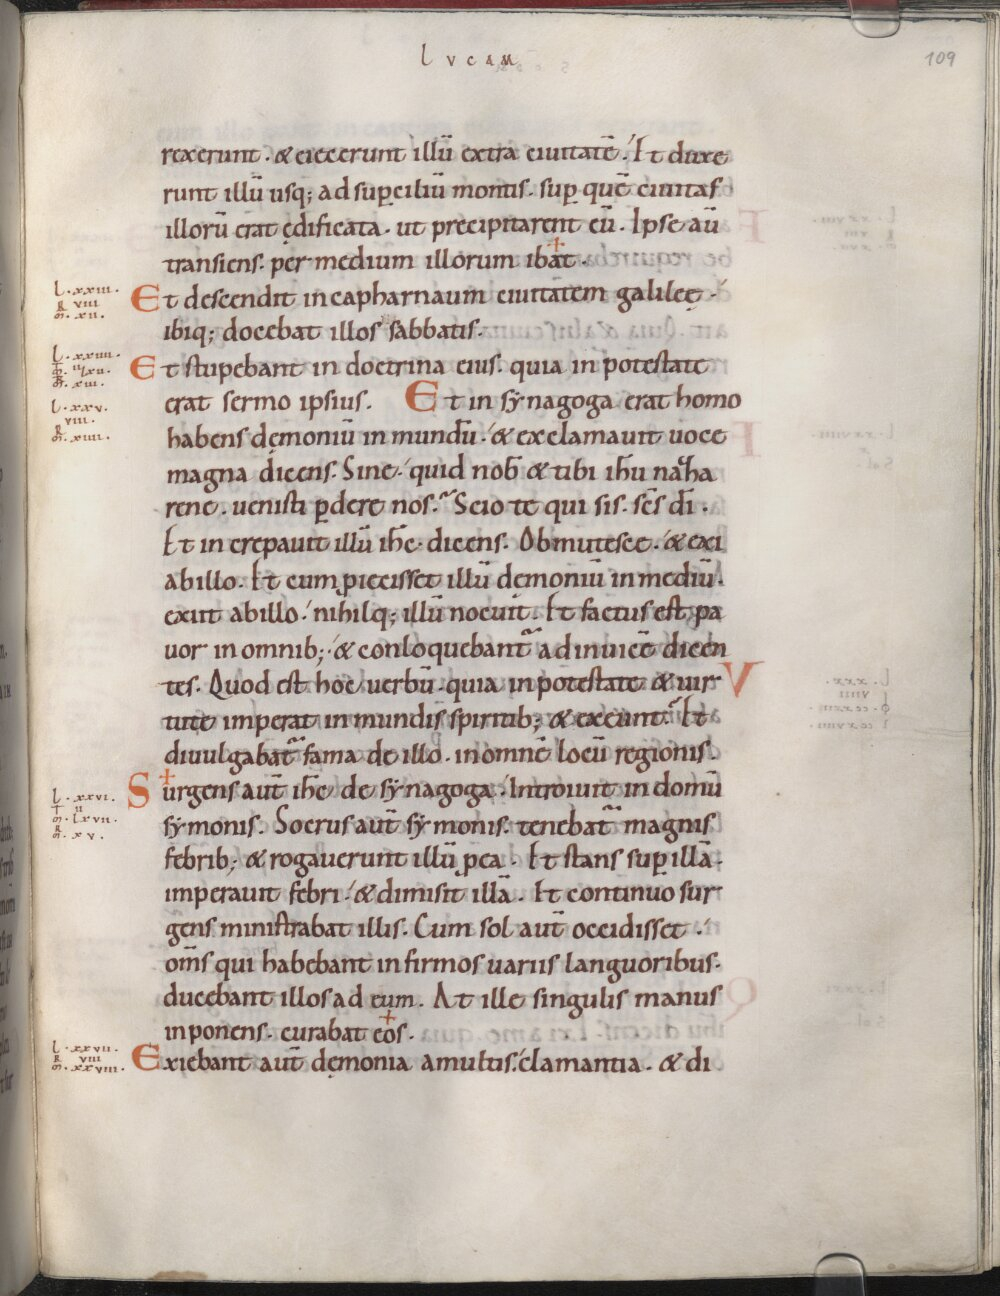 LVCAM
109
rexerunt · & eiecerunt illū extra ciuitatē · Et duxe
runt illū usq; ad supciliū montis · sup quē ciuitas
illorū erat ędificata · ut precipitarent eū · Ipse aū
transiens · per medium illorum ibat ·
l · xxiii · viii · xii ·
Et descendit in capharnaum ciuitatem galileę ·
ibiq; docebat illos sabbatis ·
l · xxiiii · ii · lxii · xiii ·
Et stupebant in doctrina eius · quia in potestate
erat sermo ipsius · Et in synagoga erat homo
l · xxv · viii · xiiii ·
habens dęmoniū inmundū · & exclamauit uoce
magna dicens · Sine · quid nob̄ & tibi ih̄u naza
rene · uenisti pdere nos · Scio te qui sis · sc̄s dī ·
Et increpauit illū ih̄c · dicens · Obmutesce · & exi
ab illo · Et cum piecisset illū dęmoniū in mediū ·
exiit ab illo · nihilq; illū nocuit · Et factus est pa
uor in omnib; · & conloquebant ad inuicē dicen
tes · Quod est hoc uerbū · quia in potestate & uir
tute imperat inmundis spiritib; & exeunt · Et
diuulgabat fama de illo · in omnē locū regionis ·
l · xxvi · ii · lxvii · xv ·
Surgens aut̄ ih̄c de synagoga · Introiuit in domū
symonis · Socrus aut̄ symonis · tenebat magnis
febrib; · & rogauerunt illū p ea · Et stans sup illā ·
imperauit febri · & dimisit illā · Et continuo sur
gens ministrabat illis · Cum sol aut̄ occidisset ·
om̄s qui habebant infirmos uariis languoribus ·
ducebant illos ad eum · At ille singulis manus
inponens · curabat eos ·
l · xxvii · viii · xxviii ·
Exiebant aut̄ dęmonia a multis · clamantia · & di